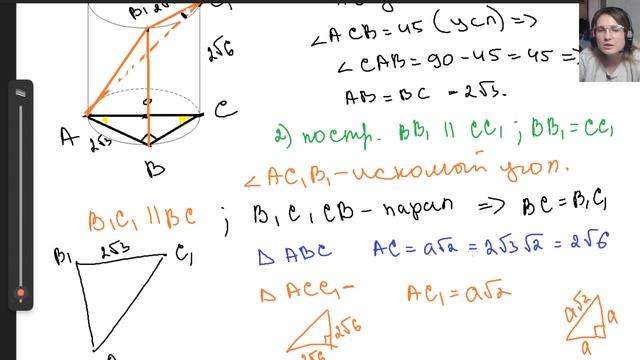 B₁ 2√3 C₁
2√6
∠ACB = 45 (усл) =>
∠CAB = 90 - 45 = 45 =>
AB = BC = 2√3.
A
C
2√3
B
2) постр. BB₁ || CC₁ ; BB₁ = CC₁
∠AC₁B₁ - искомый угол.
B₁C₁ || BC ; B₁C₁CB - парал => BC = B₁C₁
B₁ 2√3 C₁
△ ABC AC = a√2 = 2√3√2 = 2√6
△ ACC₁ - AC₁ = a√2
2√6
2√6
a√2 a
a